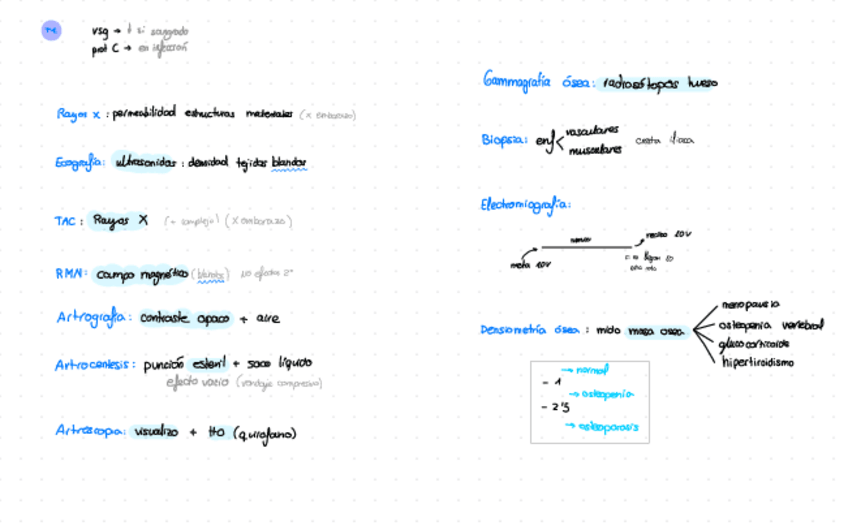 vsg → si sangrado
prot C → en infección
Rayos x : permeabilidad estructuras materiales (x embarazo)
Ecografía: ultrasonidos : densidad tejidos blandos
TAC : Rayos X (+ complejo) (x embarazo)
RMN: campo magnético (blandos) no efectos 2º
Artrografía: contraste opaco + aire
Artrocentesis: punción esteril + saco líquido
efecto vacío (vendaje compresivo)
Artroscopia: visualizo + tto (quirofano)
Gammagrafía ósea: radioisótopos hueso
Biopsia: enf vasculares
musculares
cresta iliaca
Electromiografía:
nervio
meto 10V
recibo 10V
Densiometría ósea : mido masa osea
menopausia
osteopenia vertebral
glucocorticoide
hipertiroidismo
→ normal
- 1
→ osteopenia
- 2'5
→ osteoporosis